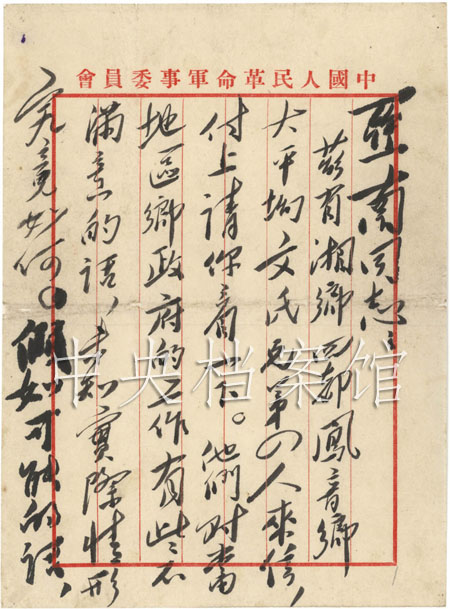 中國人民革命軍事委員會
亞南同志：
兹有湘鄉四都鳳音鄉
大平坳文氏兄弟四人來信，
付上请你看一下。他們对當
地區鄉政府的工作有些不
满意的话，未知實際情形
究竟如何。假如可能的话，
中央档案馆